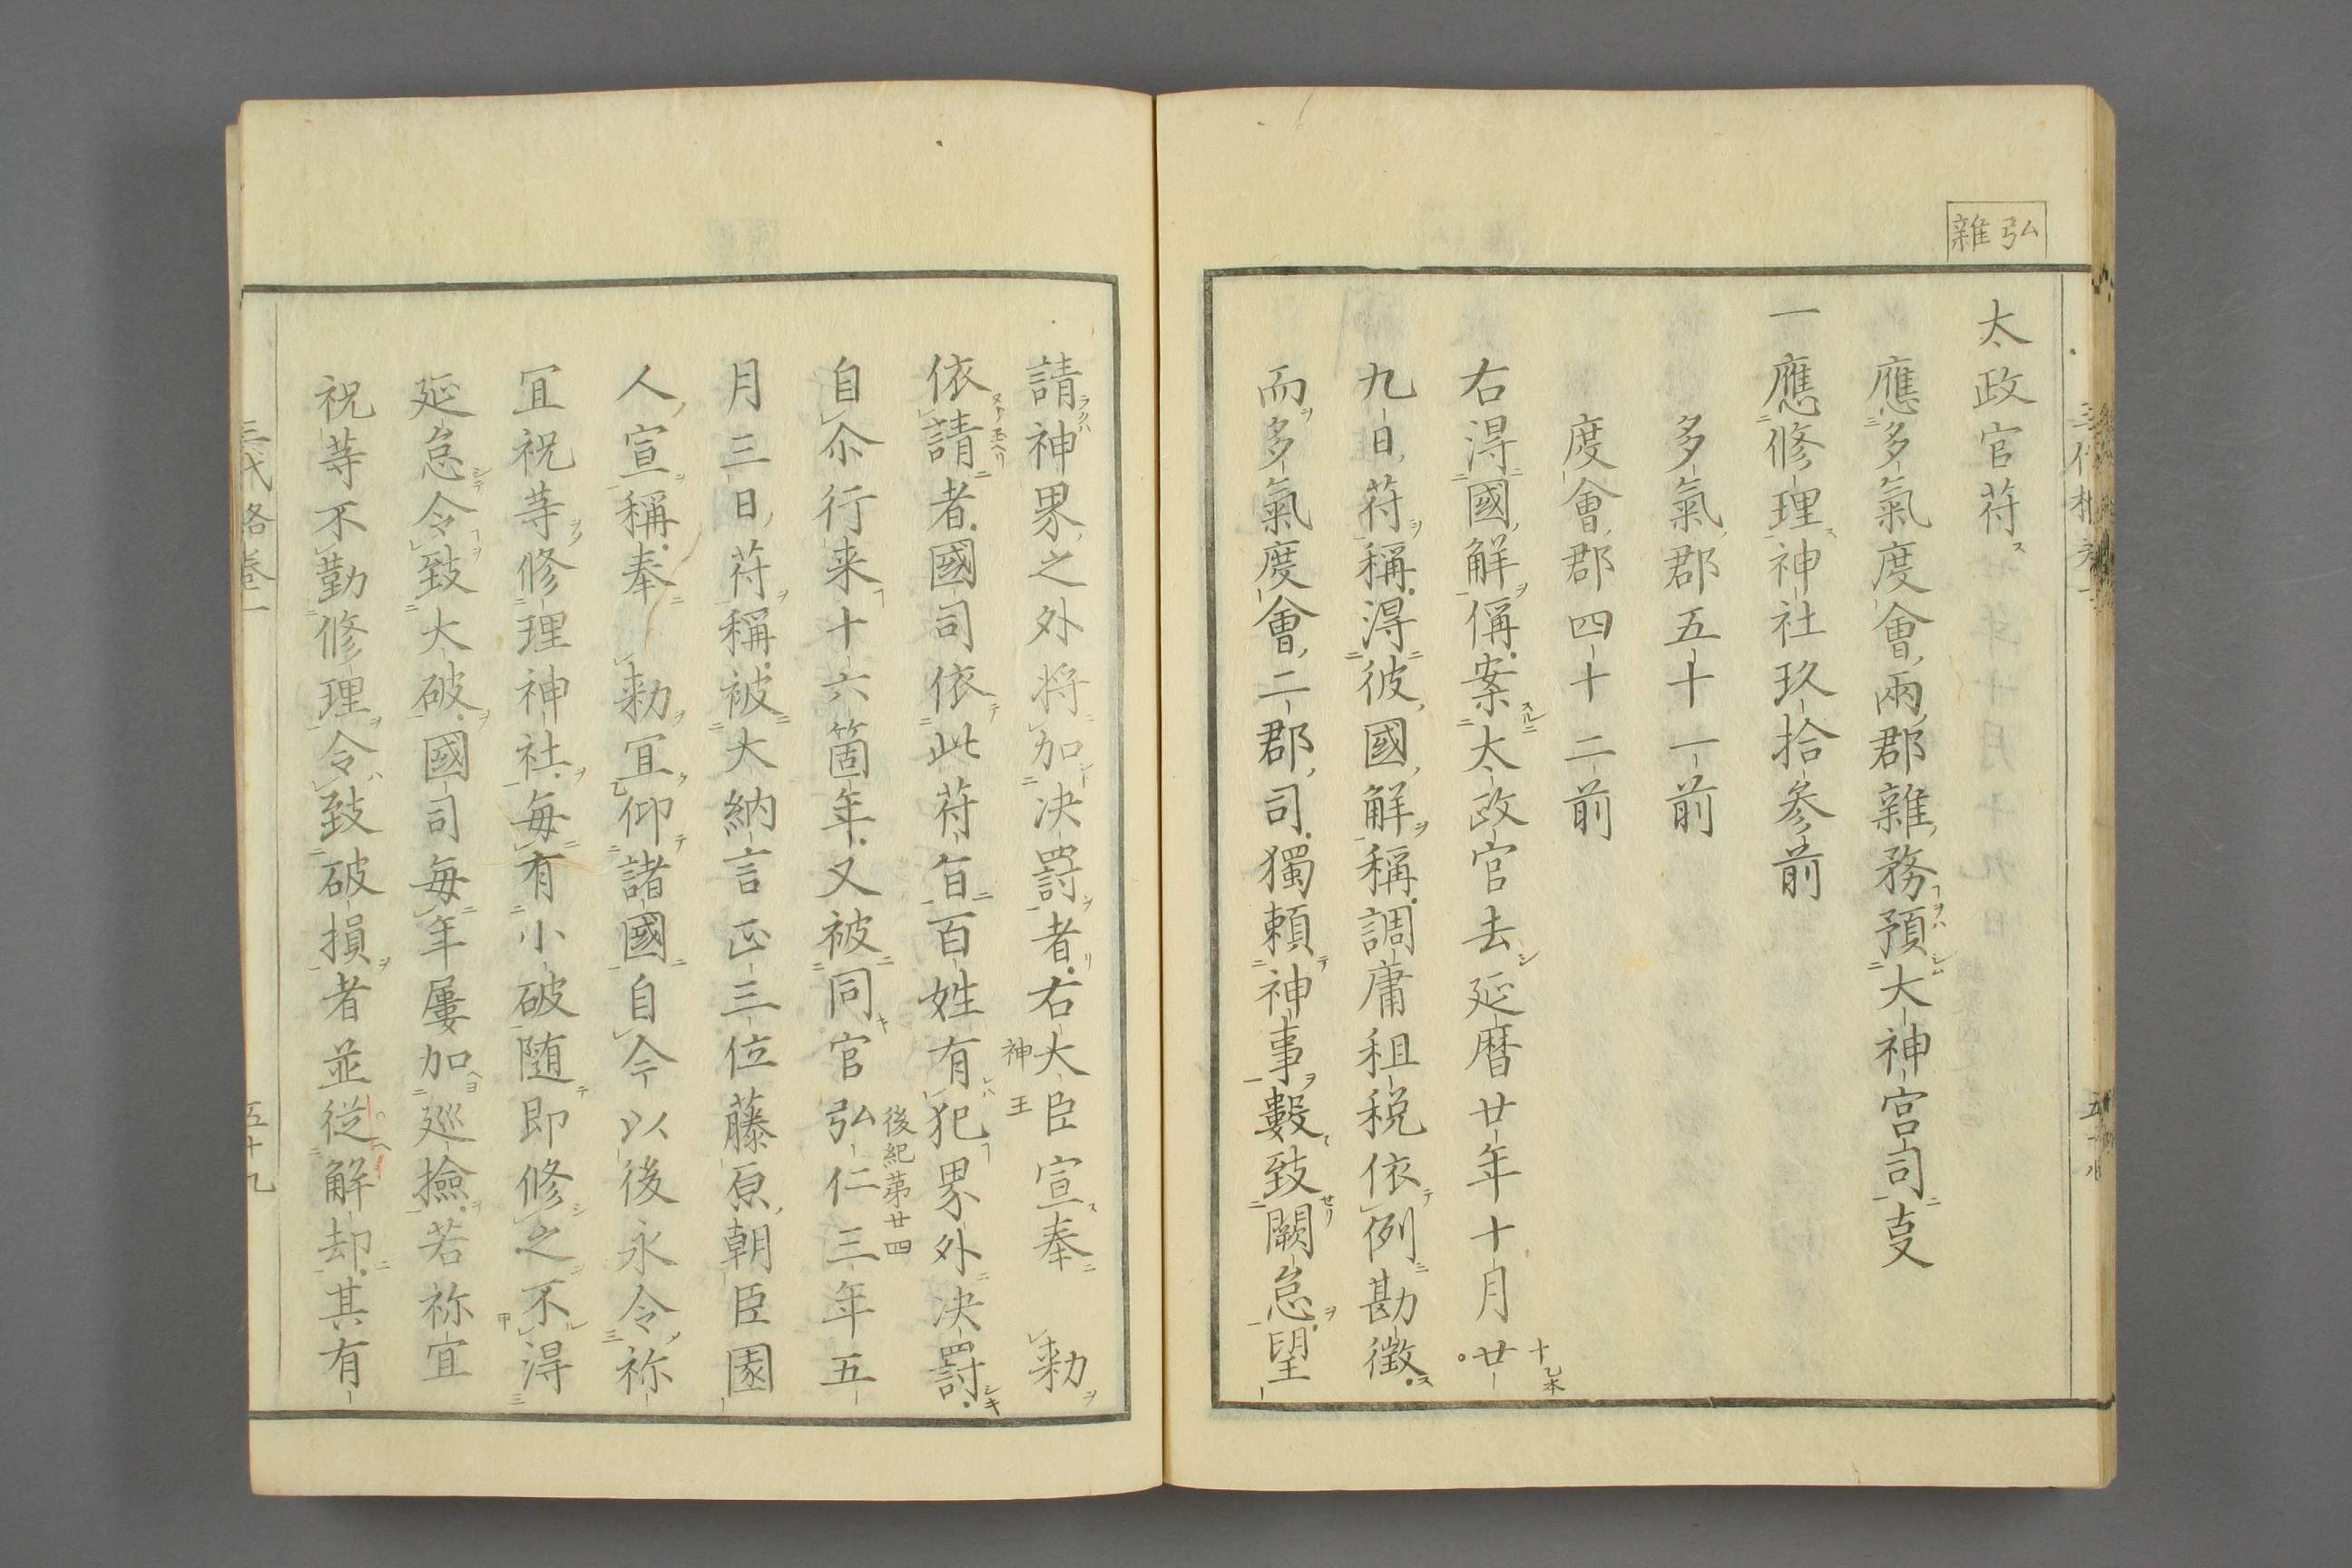 弘雜
太政官苻ス
應多氣度會兩郡雜務預大神宮司㕝
一應修理神社玖拾参前
多氣郡五十一前
度會郡四十二前
右得國解偁案太政官去延暦廿年十月廿
十乙本
九日苻稱得彼國解稱調庸租税依例勘徴
而多氣度會二郡司獨頼神事數致闕怠望
請神界之外将加决罸者右大臣宣奉 勅
神王
依請者國司依此苻旨百姓有犯界外决罸
自尒行来十六箇年又被同官弘仁三年五
後紀苐廿四
月三日苻稱被大納言正三位藤原朝臣園
人宣稱奉 勅冝仰諸國自今以後永令祢
冝祝等修理神社毎有小破随即修之不得
延怠令致大破國司毎年屢加巡撿若祢宜
祝等不勤修理令致破損者並従解却其有
三代格巻一
五十九